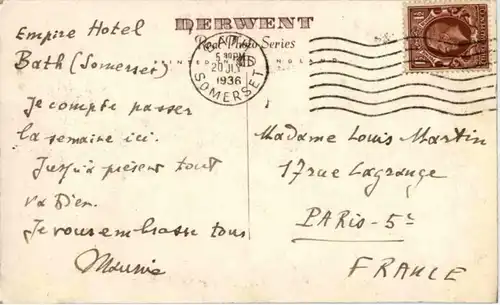 DERWENT
Real Photo Series
PRINTED IN ENGLAND
BATH
SOMERSET
1936
Empire Hotel
Bath (Somerset)
Je compte passer
la semaine ici.
Jusqu'à présent tout
va bien.
Je vous embrasse tous
Madame Louis Martin
17 rue Lagrange
PARIS-5e
FRANCE